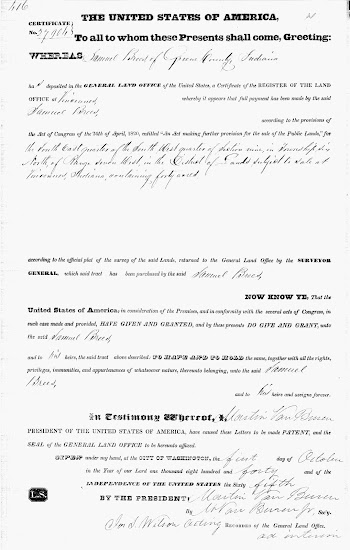 416
CERTIFICATE
No. 27904
THE UNITED STATES OF AMERICA,
To all to whom these Presents shall come, Greeting:
WHEREAS Samuel Breed, of Greene County, Indiana
ha s deposited in the GENERAL LAND OFFICE of the United States, a Certificate of the REGISTER OF THE LAND
OFFICE at Vincennes whereby it appears that full payment has been made by the said
Samuel Breed
according to the provisions of
the Act of Congress of the 24th of April, 1820, entitled "An Act making further provision for the sale of the Public Lands," for
the South East quarter of the South West quarter of Section nine, in Township six
North, of Range seven West, in the District of Lands subject to sale at
Vincennes, Indiana, containing forty acres
according to the official plat of the survey of the said Lands, returned to the General Land Office by the SURVEYOR
GENERAL, which said tract has been purchased by the said Samuel Breed
NOW KNOW YE, That the
United States of America, in consideration of the Premises, and in conformity with the several acts of Congress, in
such case made and provided, HAVE GIVEN AND GRANTED, and by these presents DO GIVE AND GRANT, unto
the said Samuel Breed
and to his heirs, the said tract above described: TO HAVE AND TO HOLD the same, together with all the rights,
privileges, immunities, and appurtenances of whatsoever nature, thereunto belonging, unto the said Samuel
Breed
and to his heirs and assigns forever.
In Testimony Whereof, I, Martin Van Buren
PRESIDENT OF THE UNITED STATES OF AMERICA, have caused these Letters to be made PATENT, and the
SEAL of the GENERAL LAND OFFICE to be hereunto affixed.
GIVEN under my hand, at the CITY OF WASHINGTON, the first day of October
in the Year of our Lord one thousand eight hundred and forty and of the
INDEPENDENCE OF THE UNITED STATES the Sixty fifth
BY THE PRESIDENT: Martin Van Buren
L.S.
By M Van Buren Jr. Sec'y.
Jos. S. Wilson acting RECORDER of the General Land Office,
ad interim